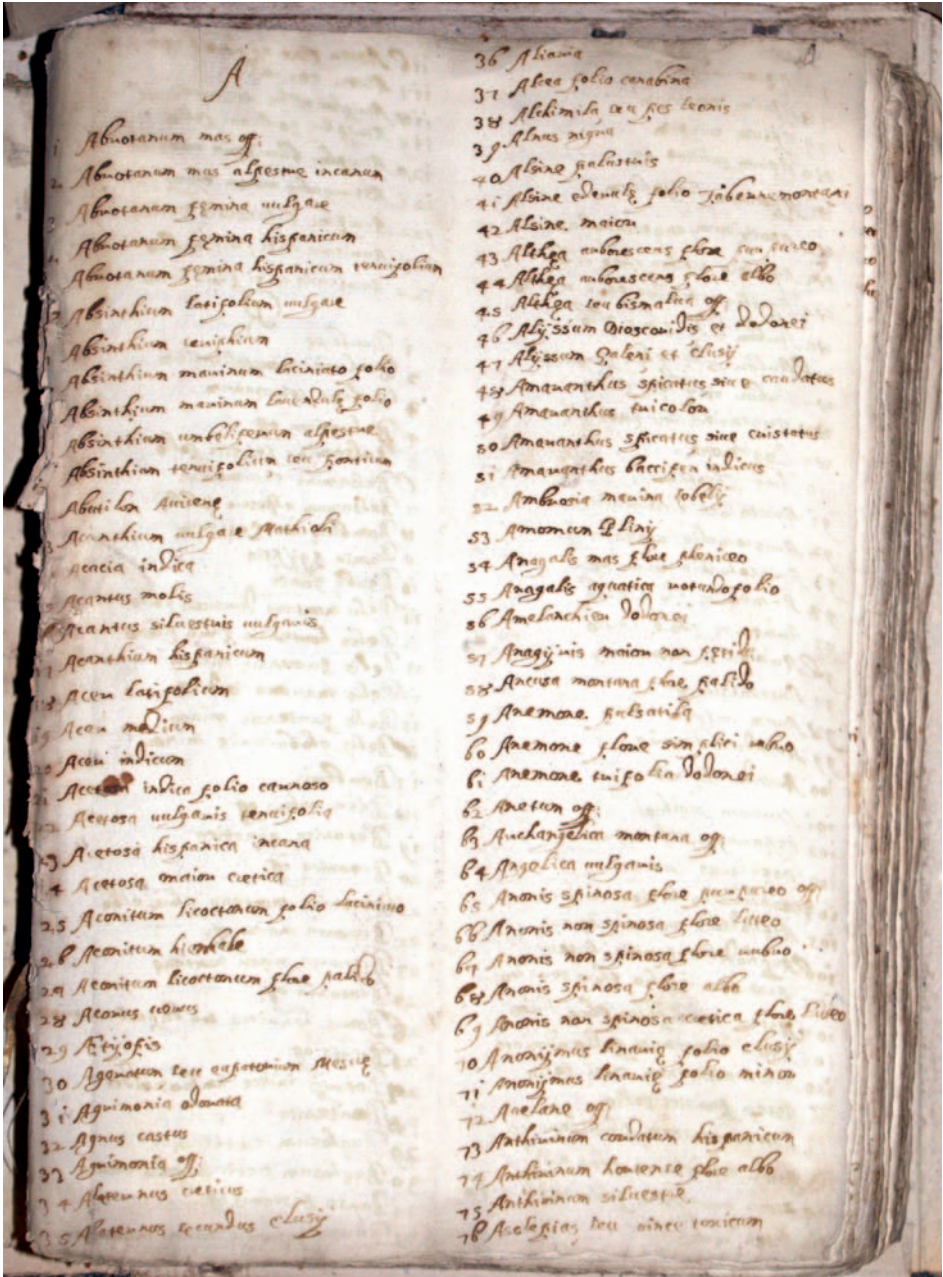 A
1 Abrotanum mas off:
2 Abrotanum mas alpestre incanum
3 Abrotanum femina vulgare
4 Abrotanum femina hispanicum
Abrotanum femina hispanicum tenuifolium
Absinthium latifolium vulgare
Absinthium seriphium
Absinthium marinum laciniato folio
Absinthium marinum lavendule folio
Absinthium umbeliferum alpestre
Absinthium tenuifolium seu ponticum
Abutilon Avicene
Acanthium vulgare Mathioli
Acacia indica
Acantus molis
Acantus silvestris vulgaris
17 Acanthium hispanicum
18 Acer latifolium
19 Acer
Acori indicum
21 indica folio carnoso
22 Acetosa vulgaris tenuifolia
23 Acetosa hispanica incana
24 Acetosa maior cretica
25 Aconitum licoctonum folio laciniato
26 Aconitum hiemale
27 Aconitum licoctonum flore palido
28 Acorus verus
29 Ætijopis
30 Ageratum seu eupatorium Mesue
31 Agrimonia odorata
32 Agnus castus
33 Agrimonia off:
34 Alaternus creticus
35 Alaternus secundus clusij
A
36 Aliaria
37 Alcea folio canabina
38 Alchimila seu pes leonis
39 Alnus nigra
40 Alsine palustris
41 Alsine folio Tabernemontani
42 Alsine maior
43 Althea arborescens flore purpureo
44 Althea arborescens flore albo
45 Althea seu bismalva off:
46 Alijssum Dioscoridis et dodonei
47 Alijssum Galeni et clusij
48 Amaranthus spicatus sive caudatus
49 Amaranthus tricolor
50 Amaranthus spicatus sive cristatus
51 Amaranthus baccifer indicus
52 Ambrosia marina lobelij
53 Amomum Plinij
54 Anagalis mas flore pheniceo
55 Anagalis aquatica rotundo folio
56 Amelanchier dodonei
57 Anagijris maior non fetida
58 Ancusa montana flore palido
59 Anemone. pulsatila
60 Anemone flore simplici rubro
61 Anemone trifolia dodonei
62 Anetum off:
63 Archangelica montana off:
64 Angelica vulgaris
65 Anonis spinosa flore purpureo off:
66 Anonis non spinosa flore luteo
67 Anonis non spinosa flore rubro
68 Anonis spinosa flore albo
69 Anonis non spinosa cretica flore luteo
70 Anonijmus linarie folio clusij
71 Anonijmus linarie folio minor
72 Avelane off:
73 Anthirinum caudatum hispanicum
74 Anthirinum hortense flore albo
75 Anthirinum silvestre.
76 Asclepias seu vince toxicum